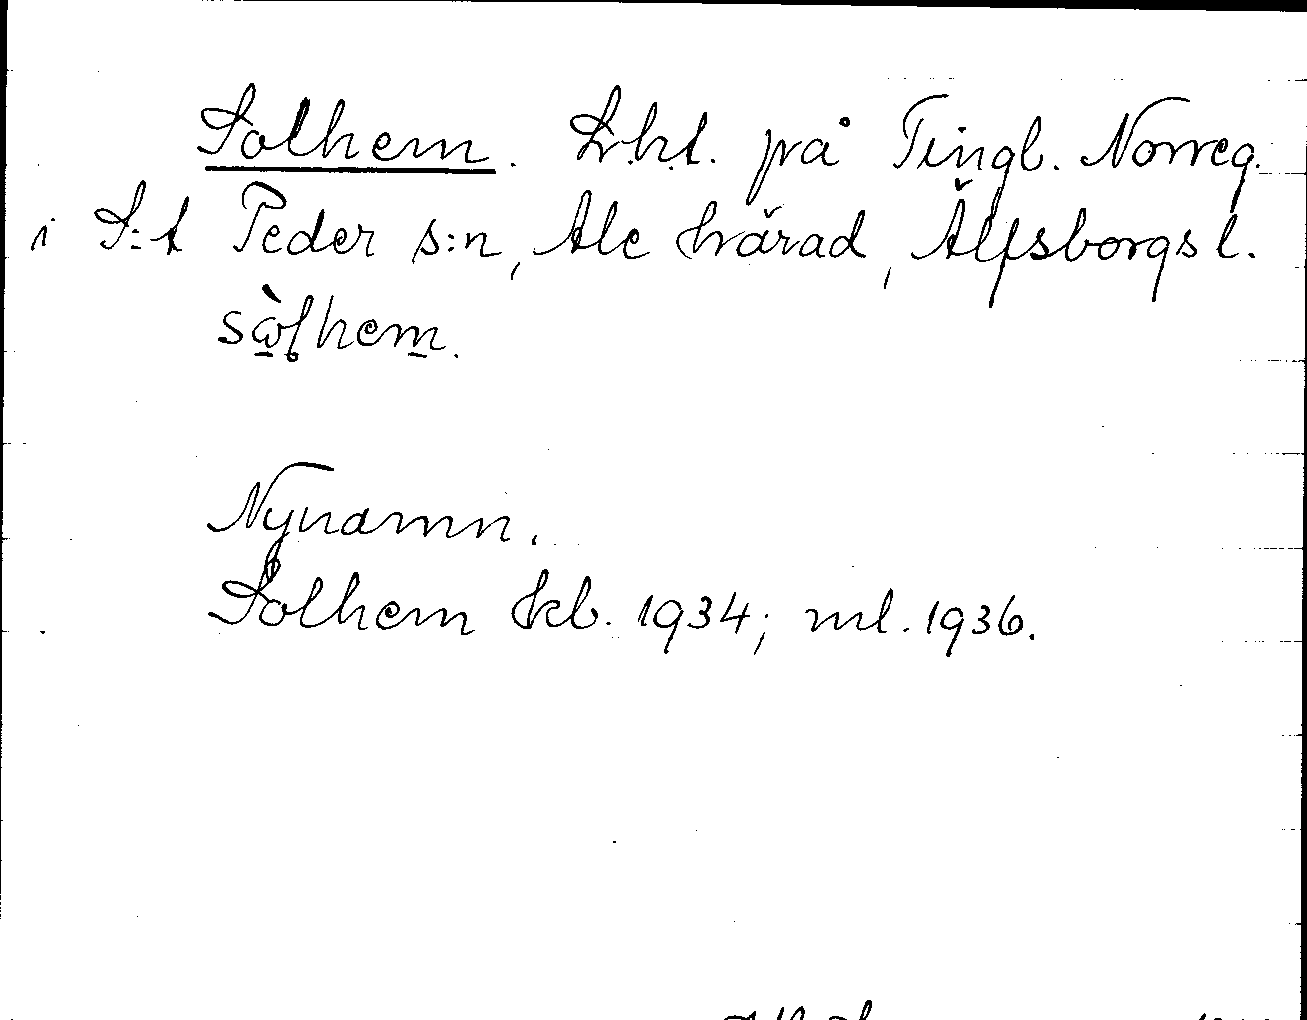 Solhem. Lht. på Tingb. Norreg.
i S:t Peder s:n, Ale härad, Älfsborgs l.
Nynamn.
Solhem kb. 1934; ml. 1936.